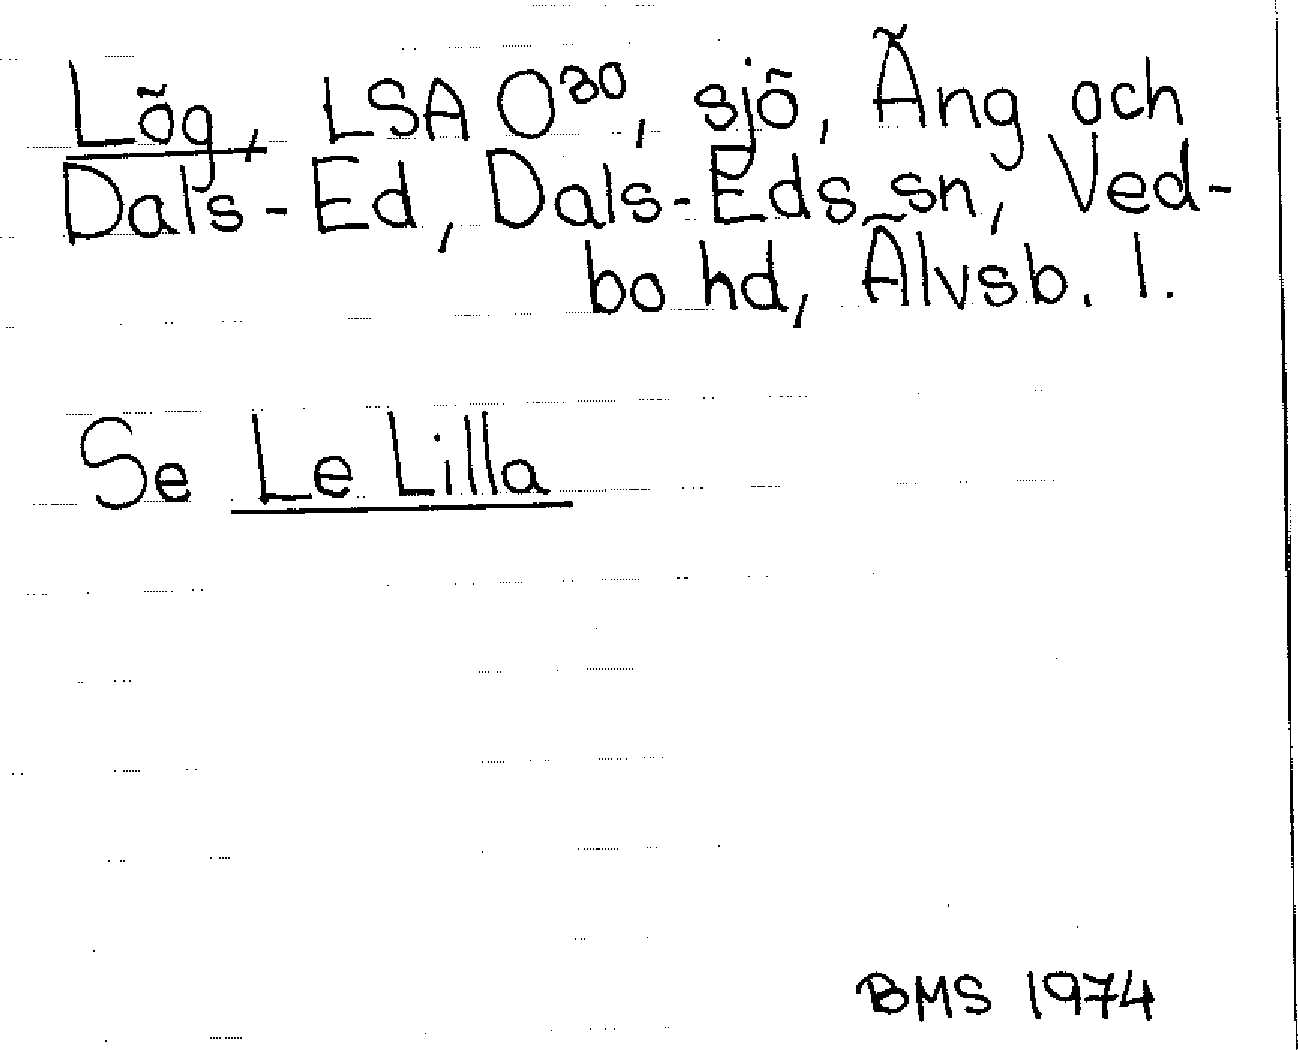 Lög, LSA O³⁰, sjö, Äng och
Dals-Ed, Dals-Eds sn, Ved-
bo hd, Älvsb. l.
Se Le Lilla
BMS 1974